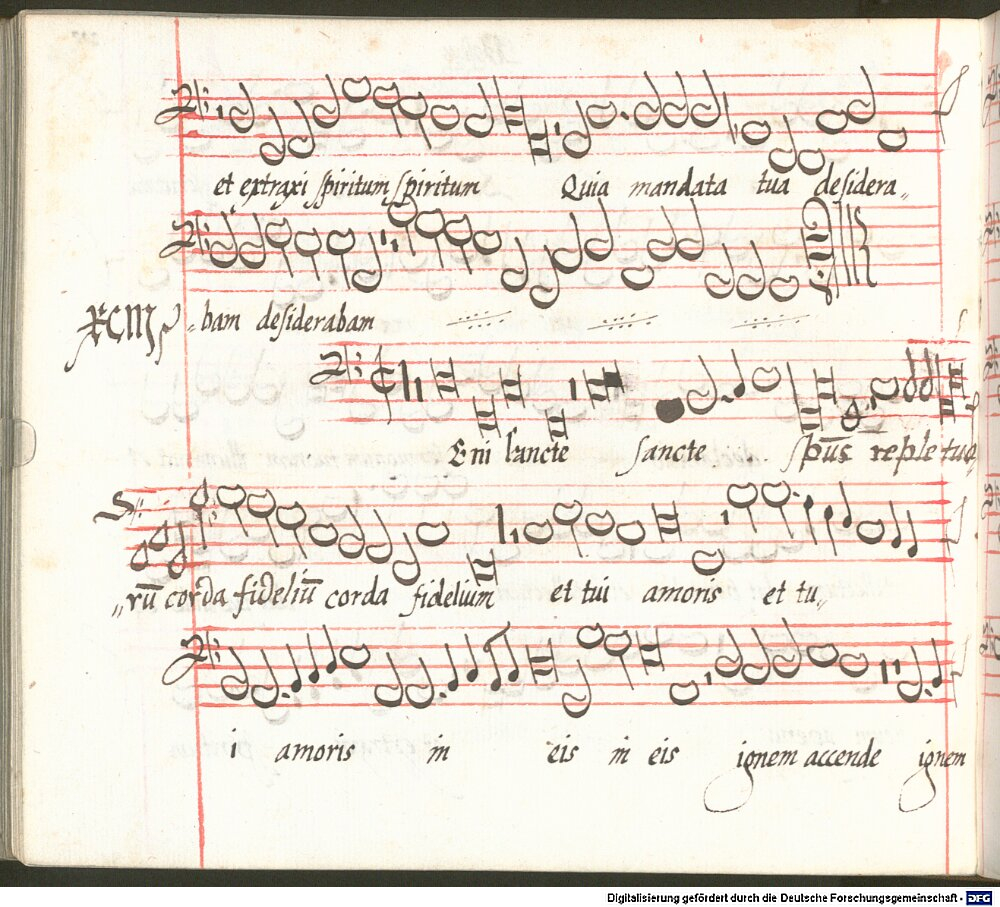 et extraxi spiritum spiritum Quia mandata tua desidera„
XCIII
„bam desiderabam
Eni sancte sancte spūs reple tuo„
„rū corda fideliū corda fidelium et tui amoris et tu„
i amoris in eis in eis ignem accende ignem
Digitalisierung gefördert durch die Deutsche Forschungsgemeinschaft - DFG